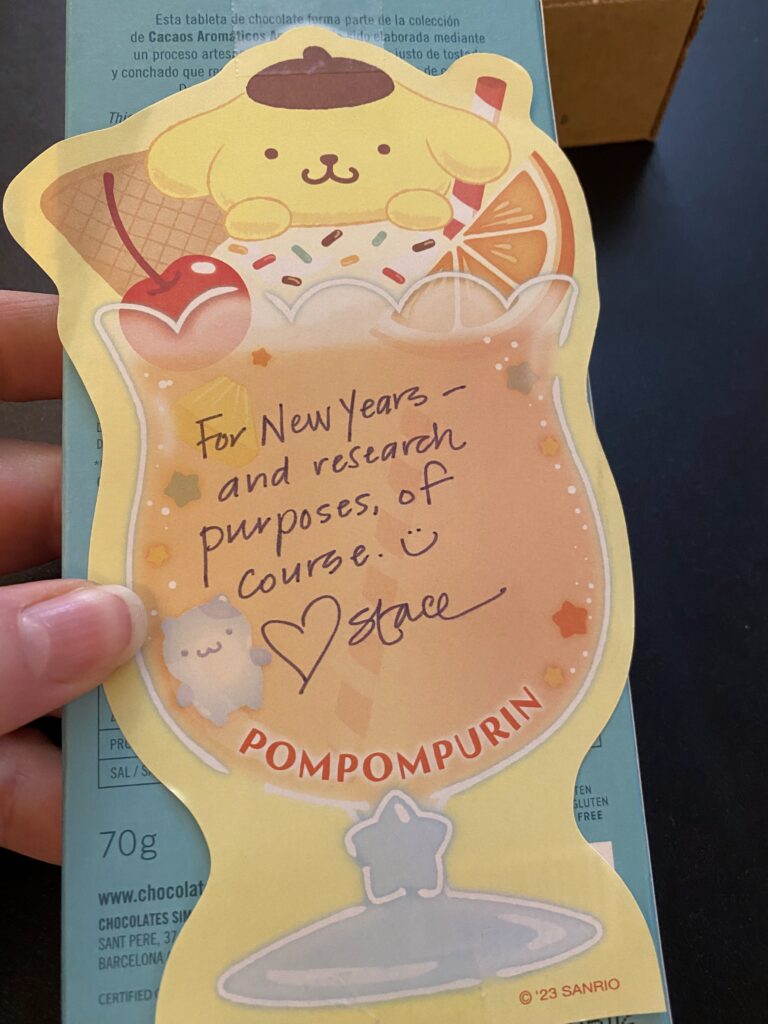 Esta tableta de chocolate forma parte de la colección
de Cacaos Aromáticos elaborada mediante
un proceso justo de
y conchado que de
For New Years –
and research
purposes, of
course. :)
♡ stace
POMPOMPURIN
SAL /
GLUTEN
FREE
70g
www.chocolat
CHOCOLATES
SANT PERE, 37
BARCELONA
CERTIFIED
© '23 SANRIO